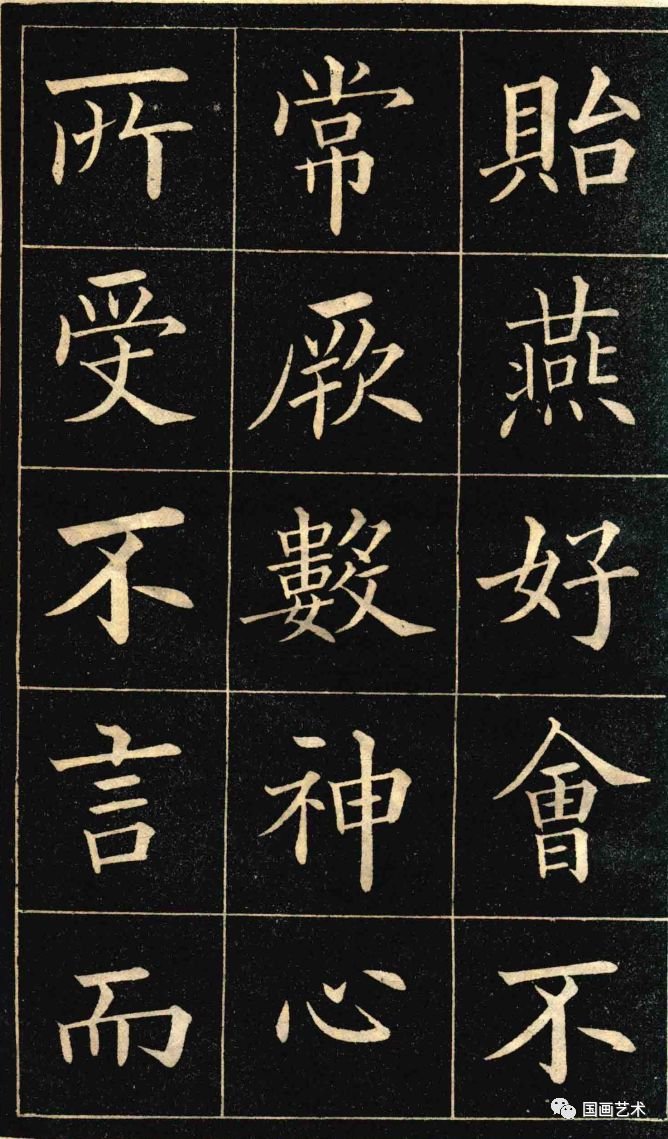 貽燕好會不
常厥數神心
所受不言而
国画艺术